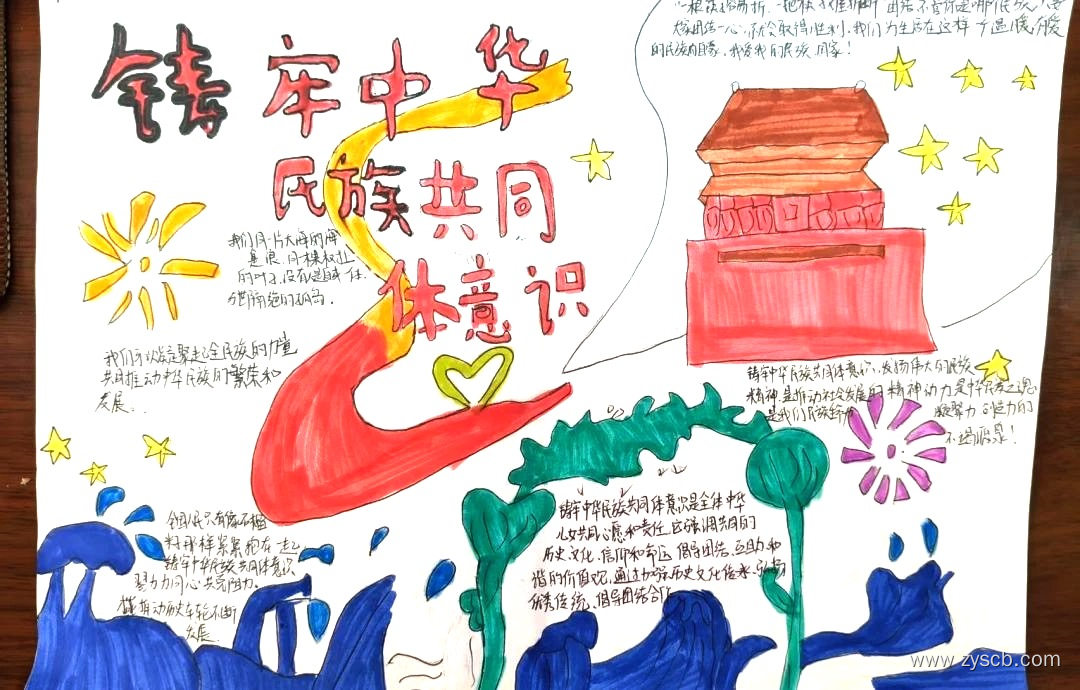 铸牢中华
民族共同
体意识
一根筷易折,一把筷难折断 团结 不管你是哪个民族
大家团结一心,就会取得胜利,我们为生活在这样个温暖
的民族大家,我爱我的民族同家!
我们同一片大海的海
浪,同一棵树上
的叶子,没有
我们可以凝聚起全民族的力量
共同推动中华民族的繁荣和
发展...
铸牢中华民族共同体意识,发扬伟大的民族
精神,是推动社会发展的精神动力,是中华民族之魂
是我们民族 凝聚力 创造力的
不竭源泉!
铸牢中华民族共同体意识是全体中华
儿女共同心愿和责任,它强调共同的
历史、文化、信仰和命运,倡导团结、互助、和
谐的价值观,通过加强历史文化传承、弘扬
优秀传统、倡导团结合作
全国人民只有像石榴
籽那样紧紧抱在一起
铸牢中华民族共同体意识
努力同心共克
推动历史车轮不断
发展
www.zyscb.com